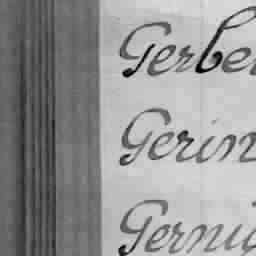 Gerbe
Gerin
Gernig